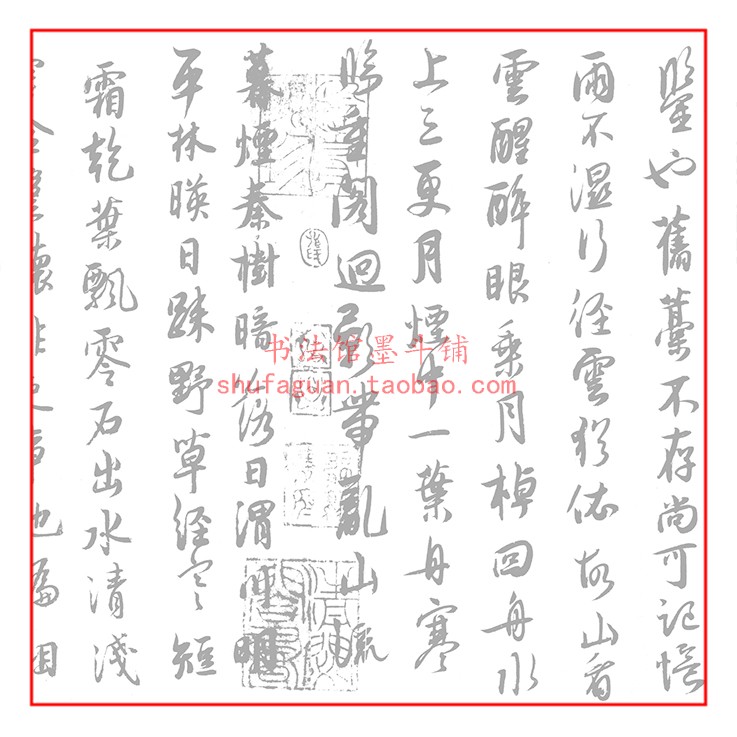 鑒也舊藁不存尚可記憶
雨不濕行徑雲猶依故山看
雲醒醉眼乘月棹回舟水
上三更月煙中一葉舟寒
重閣迥影帶亂山
暮煙秦樹暗落日渭川明
平林暎日踈野草經寒短
霜乾葉飄零石出水清淺
书法馆墨斗铺
shufaguan.taobao.com